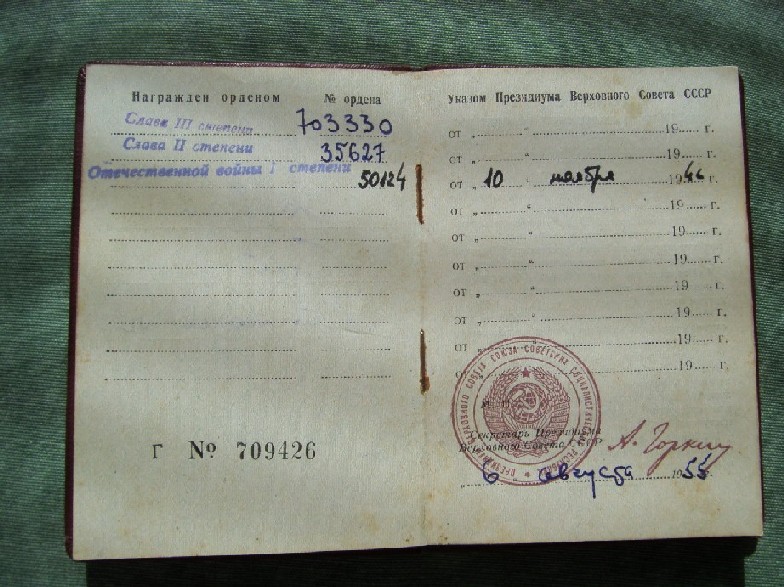 Награжден орденом № ордена
Слава III степени 703330
Слава II степени 35627
Отечественной войны I степени 50124
Г № 709426
Указом Президиума Верховного Совета СССР
от „ “ 19 г.
от „ “ 19 г.
от „ 10 “ ноября 19 г.
от „ “ 19 г.
от „ “ 19 г.
от „ “ 19 г.
от „ “ 19 г.
от „ “ 19 г.
от „ “ 19 г.
от „ “ 19 г.
Секретарь Президиума
Верховного Совета СССР А. Горкин
„ 6 августа 195 г.